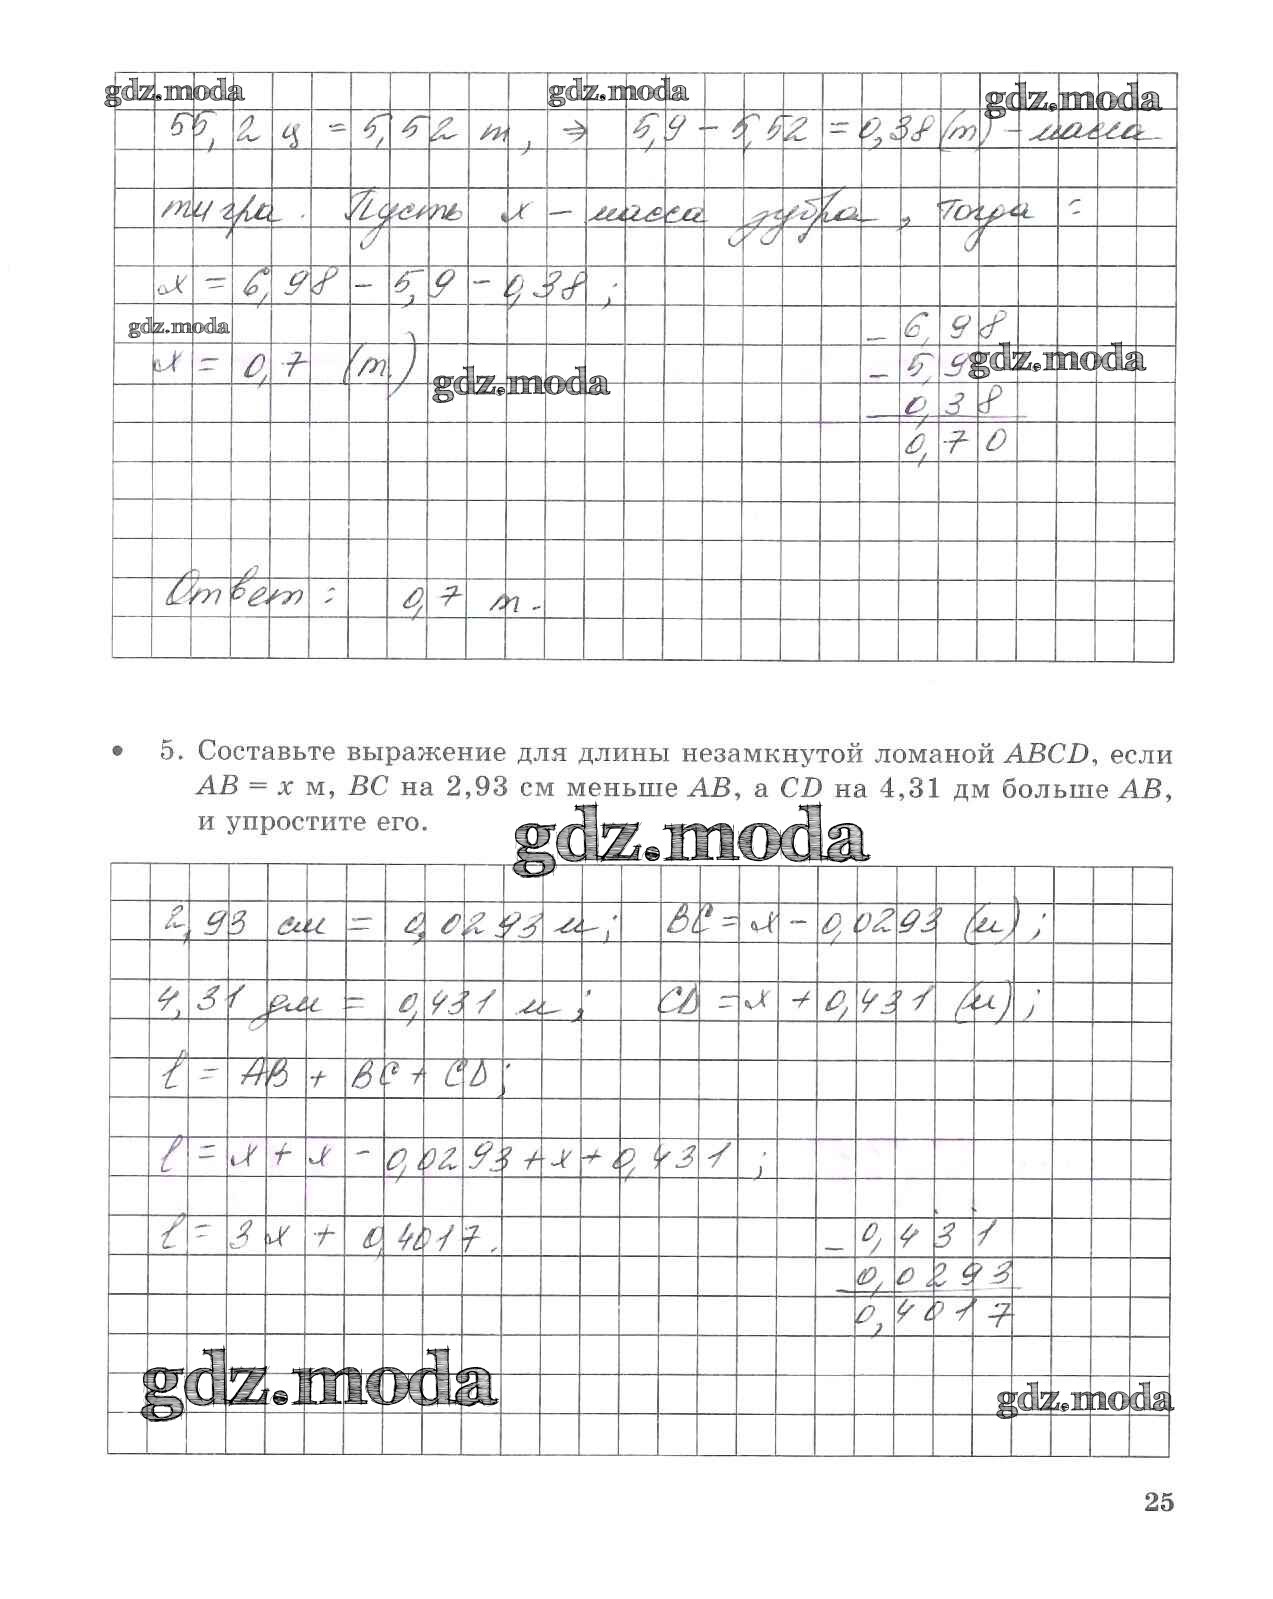 gdz.moda gdz.moda gdz.moda
55,2 ц = 5,52 т, ⇒ 5,9 - 5,52 = 0,38 (т) - масса
тигра. Пусть х - масса зубра, тогда:
х = 6,98 - 5,9 - 0,38;
gdz.moda
- 6,98
х = 0,7 (т)
gdz.moda
- 5,9
gdz.moda
0,38
0,70
Ответ: 0,7 т.
• 5. Составьте выражение для длины незамкнутой ломаной ABCD, если
AB = x м, BC на 2,93 см меньше AB, а CD на 4,31 дм больше AB,
и упростите его.
gdz.moda
2,93 см = 0,0293 м; BC = x - 0,0293 (м);
4,31 дм = 0,431 м; CD = x + 0,431 (м);
l = AB + BC + CD;
l = x + x - 0,0293 + x + 0,431;
l = 3x + 0,4017.
- 0,431
0,0293
0,4017
gdz.moda
gdz.moda
25